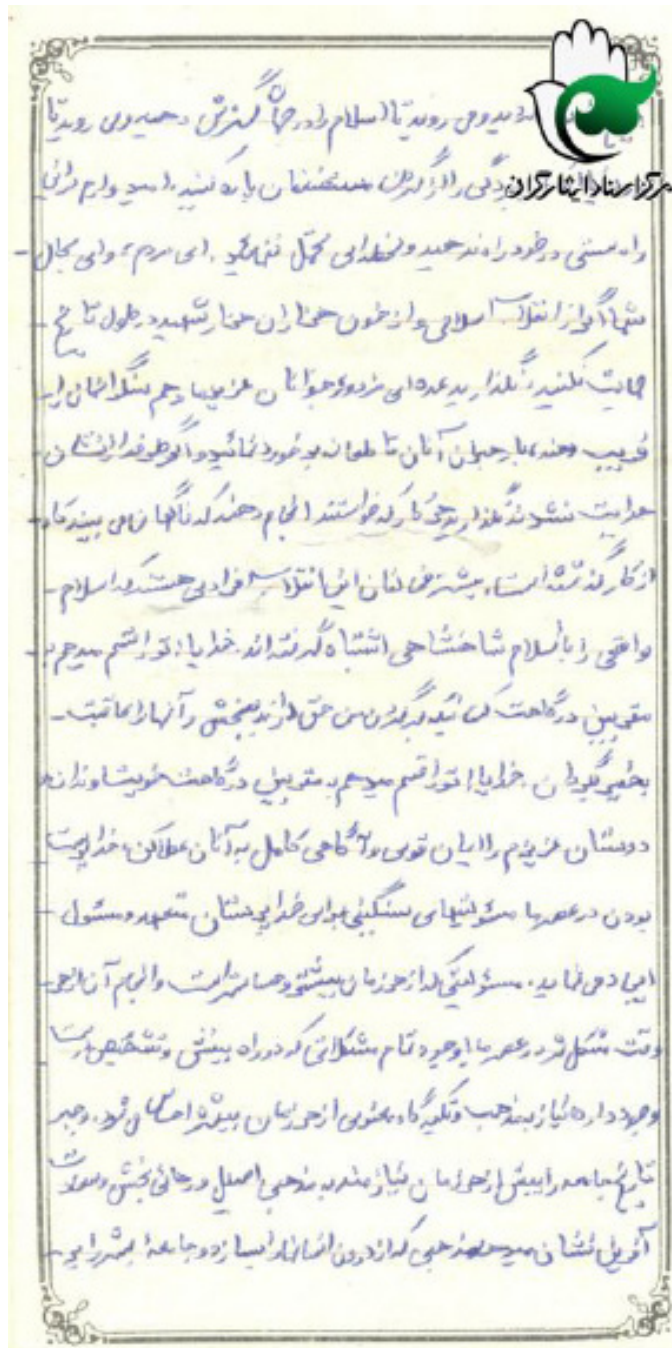 مرکز اسناد ایثارگران
دیدوم روند تا اسلام را در جهان گسترش دهید می روند تا
بردگی را از گردن مستضعفان پاره کنید، امیدوارم در این
راه سستی در خود راه ندهید و لحظه ای تحمل ننمائید. ای مردم، وای بحال
شما اگر از انقلاب اسلامی و از خون هزاران هزار شهید در طول تاریخ
حمایت نکنید، نگذارید عده ای مزدور جوانان عزیز ما در هم سنگرانمان را
فریب دهند، با رهبران آنان قاطعانه برخورد نمائید و اگر طرفدارانشان
هدایت نشدند نگذارید هر کار که خواستند انجام دهند که ناگهان می بینید کار
از کار گذشته است، بیشتر مخالفان این انقلاب افرادی هستند که اسلام
واقعی را با اسلام شاهنشاهی اشتباه گرفته اند. خدایا! تو را قسم میدهم به
مقربین درگاهت کسانیکه بر گردن من حق دارند ببخش و آنها را عاقبت
بخیر بگردان. خدایا! تو را قسم میدهم به مقربین درگاهت خویشاوندان و
دوستان عزیزم را ایمان قوی و آگاهی کامل به آنان عطا کن، خداپرست
بودن در عصر ما مسئولیتهای سنگینی برای خداپرستان متعهد و مسئول
ایجاد می نماید. مسئولیتی که از هر زمان بیشتر و حساستر است و انجام آن از هر
وقت مشکل تر در عصر ما با وجود تمام مشکلاتی که در راه بینش و تشخیص راست
وجود دارد نیاز بمذهب و تکیه گاه معنوی از هر زمان بیشتر احساس می شود. و جبر
تاریخ جامعه را بیش از هر زمان نیازمند به مذهبی اصیل و رهائی بخش و
آفرین نشان میدهد مذهبی که از درون انسانها را بسازد و جامعه بشر را بر